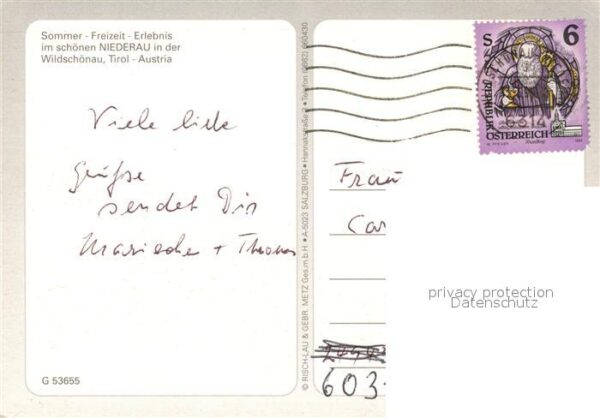 Sommer - Freizeit - Erlebnis
im schönen NIEDERAU in der
Wildschönau, Tirol - Austria
Viele liebe
Grüße
sendet Dir
+ Thomas
G 53655
© RISCH-LAU & GEBR. METZ Ges.m.b.H. • A-5023 SALZBURG • Hannakstraße • Telefon (0662) 660430
S 6
REPUBLIK
ÖSTERREICH
Frau
Ca
603
privacy protection
Datenschutz